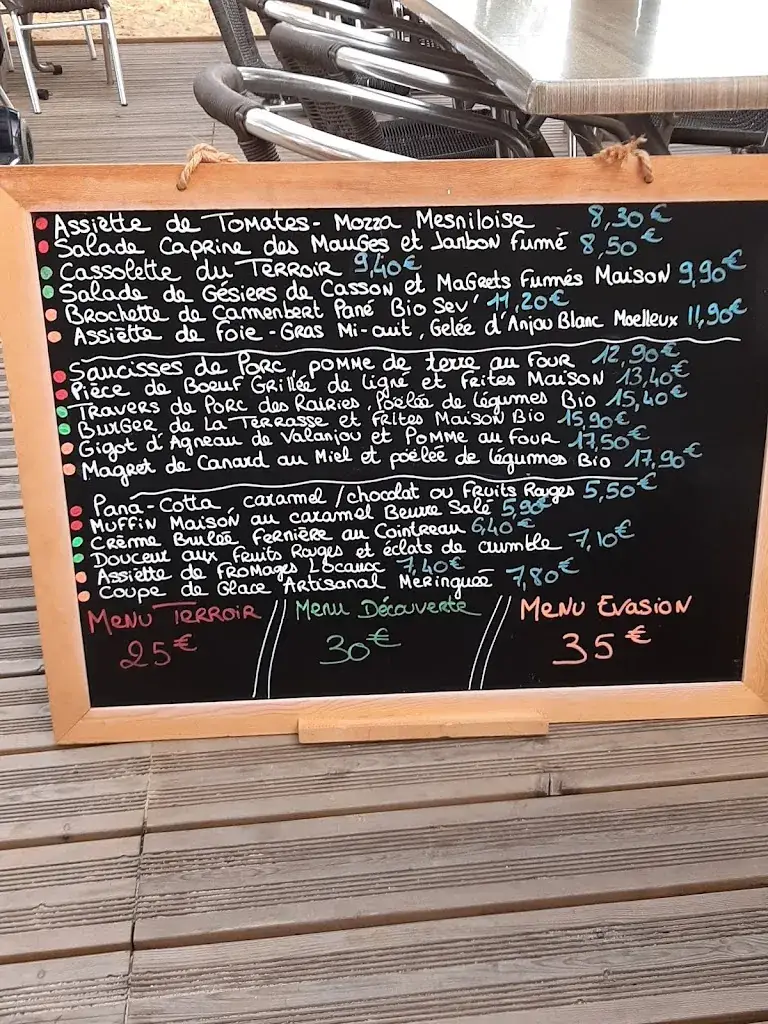 Assiette de Tomates - Mozza Mesniloise 8,30€
Salade Caprine des Mauges et Janbon Fumé 8,50€
Cassolette du Terroir 9,40€
Salade de Gésiers de Casson et Magrets Fumés Maison 9,90€
Brochette de Camenbert Pané Bio Sev' 11,20€
Assiette de Foie-Gras Mi-cuit, Gelée d'Anjou Blanc Moelleux 11,90€
Saucisses de Porc, pomme de terre au Four 12,90€
Pièce de Boeuf Grillée de ligné et Frites Maison 13,40€
Travers de Porc des Rairies, Poêlée de légumes Bio 15,40€
Burger de La Terrasse et Frites Maison Bio 15,90€
Gigot d'Agneau de Valanjou et Pomme au Four 17,50€
Magret de Canard au Miel et poêlée de légumes Bio 17,90€
Pana-Cotta, caramel/chocolat ou Fruits Rouges 5,50€
Muffin Maison au caramel Beurre Salé 5,90€
Crème Brulée Fernière au Cointreau 6,40€
Douceur aux Fruits Rouges et éclats de crumble 7,10€
Assiette de Fromages Locaux 7,40€
Coupe de Glace Artisanal Meringuée 7,80€
Menu Terroir // Menu Découverte // Menu Evasion
25€ 30€ 35€